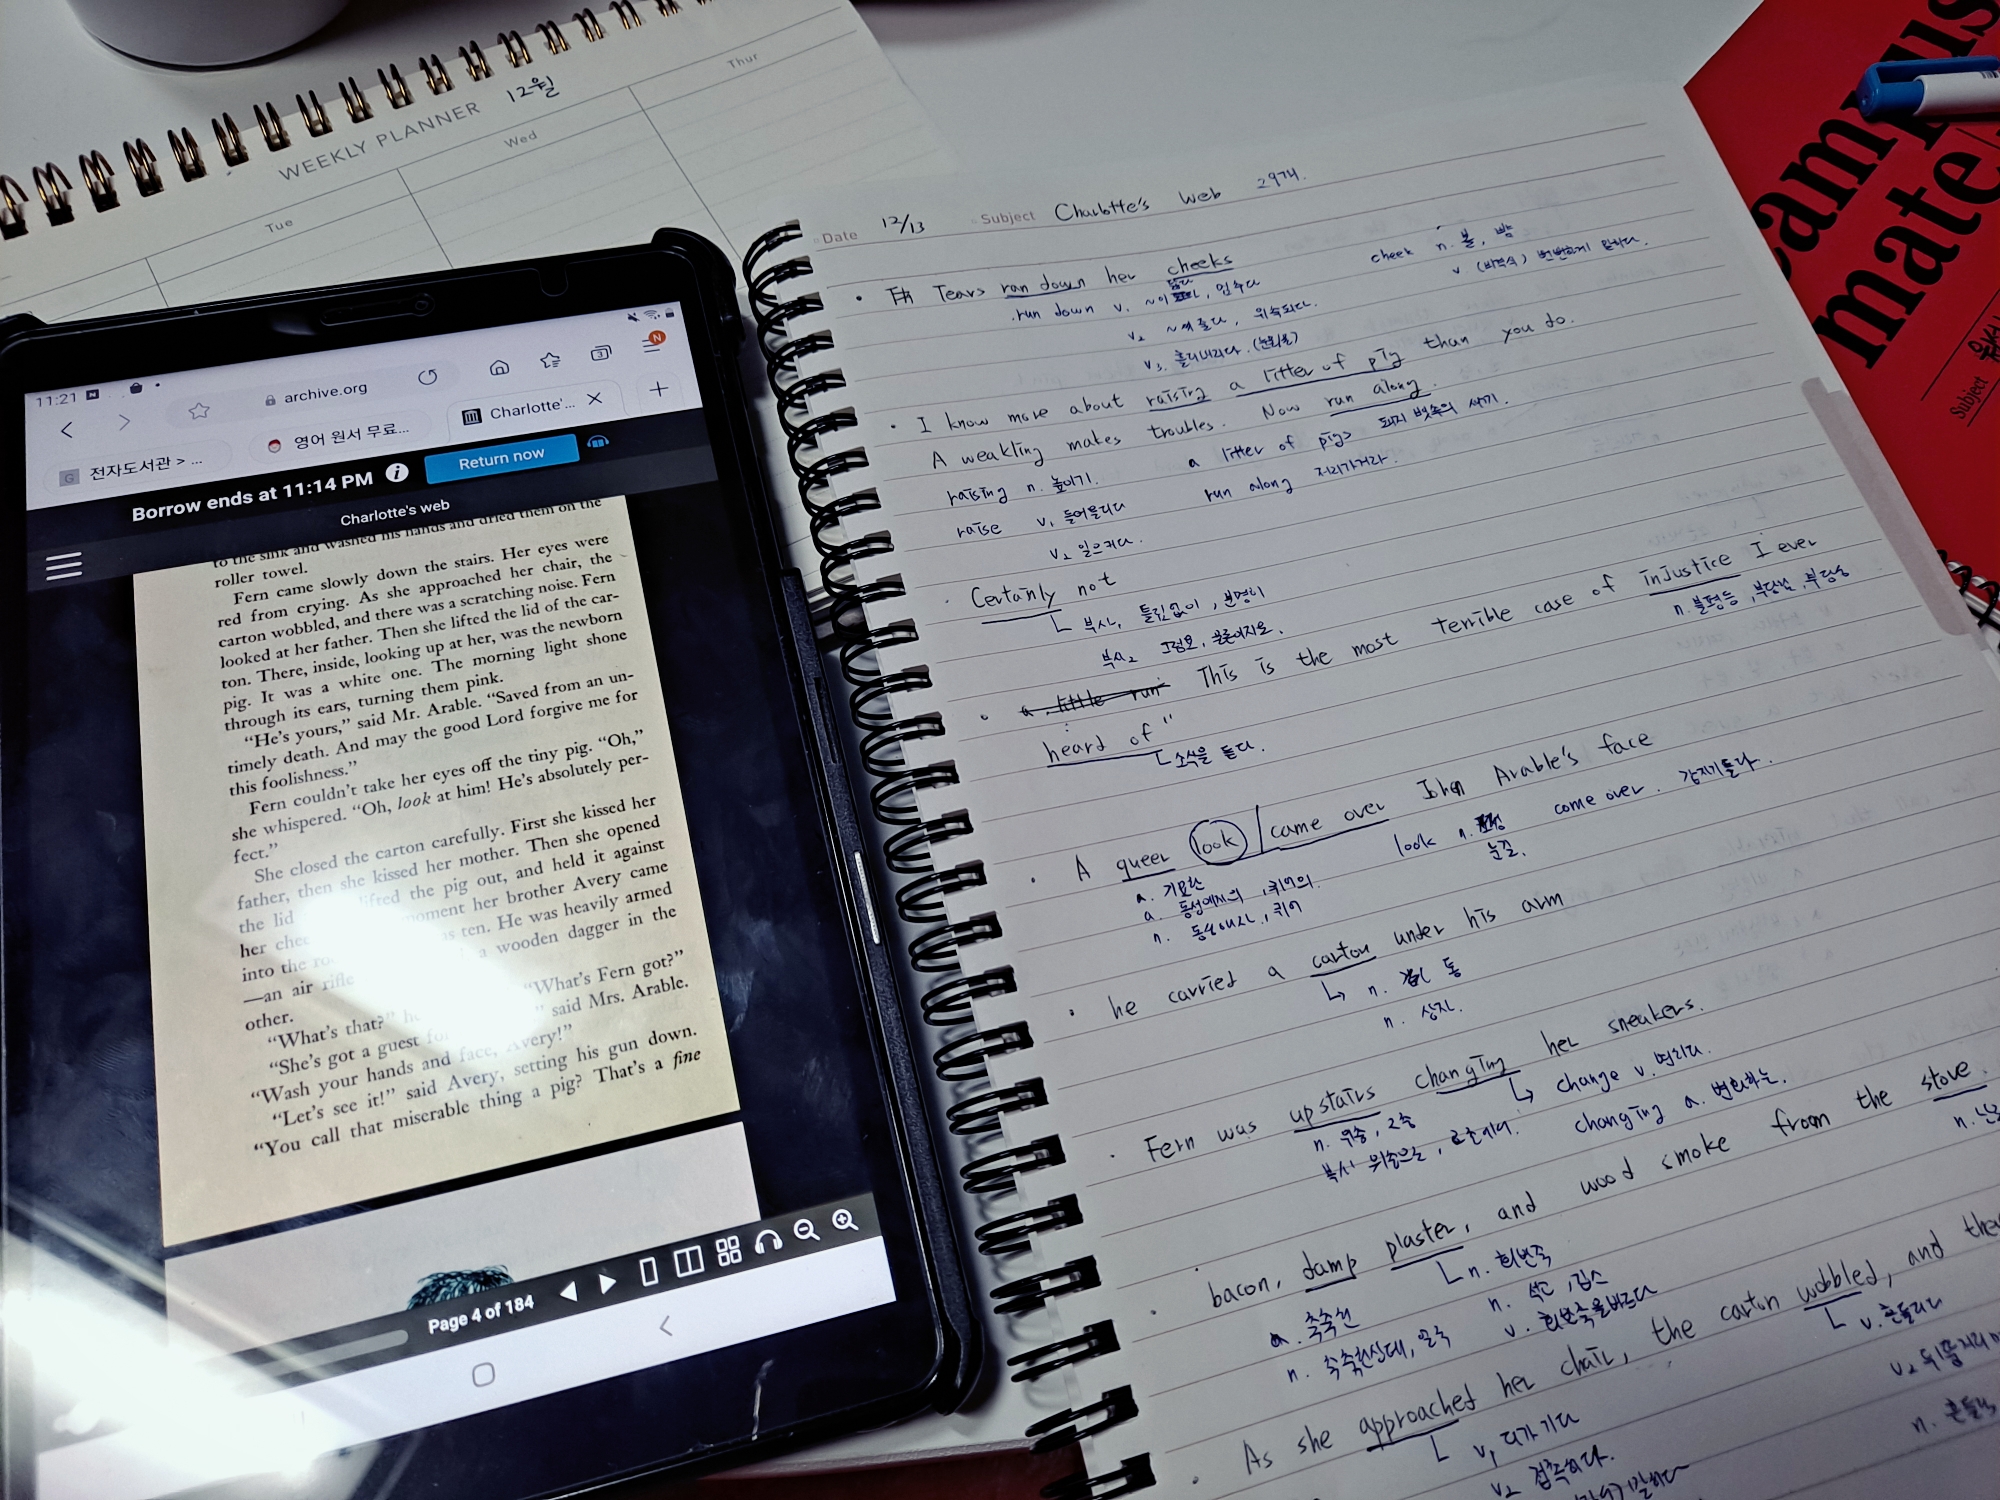 WEEKLY PLANNER 12월
Tue
Wed
Thur
11:21
archive.org
전자도서관 > ...
영어 원서 무료...
Charlotte'...
Borrow ends at 11:14 PM
Return now
Charlotte's web
to the sink and washed his hands and dried them on the
roller towel.
Fern came slowly down the stairs. Her eyes were
red from crying. As she approached her chair, the
carton wobbled, and there was a scratching noise. Fern
looked at her father. Then she lifted the lid of the car-
ton. There, inside, looking up at her, was the newborn
pig. It was a white one. The morning light shone
through its ears, turning them pink.
"He's yours," said Mr. Arable. "Saved from an un-
timely death. And may the good Lord forgive me for
this foolishness."
Fern couldn't take her eyes off the tiny pig. "Oh,"
she whispered. "Oh, look at him! He's absolutely per-
fect."
She closed the carton carefully. First she kissed her
father, then she kissed her mother. Then she opened
the lid lifted the pig out, and held it against
her moment her brother Avery came
into the ten. He was heavily armed
—an air rifle a wooden dagger in the
other.
"What's that?" "What's Fern got?"
"She's got a guest said Mrs. Arable.
"Wash your hands and face, Avery!"
"Let's see it!" said Avery, setting his gun down.
"You call that miserable thing a pig? That's a fine
Page 4 of 184
Date 12/13 Subject Charlotte's web
Tears ran down her cheeks
cheek n. 볼, 뺨
v (비격식) 뻔뻔하게 말하다.
run down v. 멈추다
v2 위축되다.
v3. 흘러내리다. (눈물을)
I know more about raising a litter of pig than you do.
A weakling makes troubles. Now run along.
raising n. 높이기.
a litter of pigs 돼지 한배의 새끼.
raise v1 들어올리다
run along 저리가거라.
v2 일으키다.
Certainly not
부사1 틀림없이, 분명히
부사2 그럼요, 물론이지요.
This is the most terrible case of injustice I ever
n. 불평등, 부당함, 부당성
heard of"
소식을 듣다.
A queer look / came over John Arable's face
a. 기묘한
look n. 표정
눈길.
come over. 갑자기 들다.
a. 동성애자의, 퀴어의.
n. 동성애자, 퀴어
he carried a carton under his arm
n. 통
n. 상자.
Fern was upstairs changing her sneakers.
n. 위층, 2층
change v. 변하다.
부사 위층으로
changing a. 변화하는.
bacon, damp plaster, and wood smoke from the stove.
n. 회반죽
a. 축축한
n. 석고, 깁스
n. 축축한상태
v. 회반죽을바르다
As she approached her chair, the carton wobbled, and
v. 흔들리다
v1 다가가다
v2 접촉하다.
campus
mate
Subject